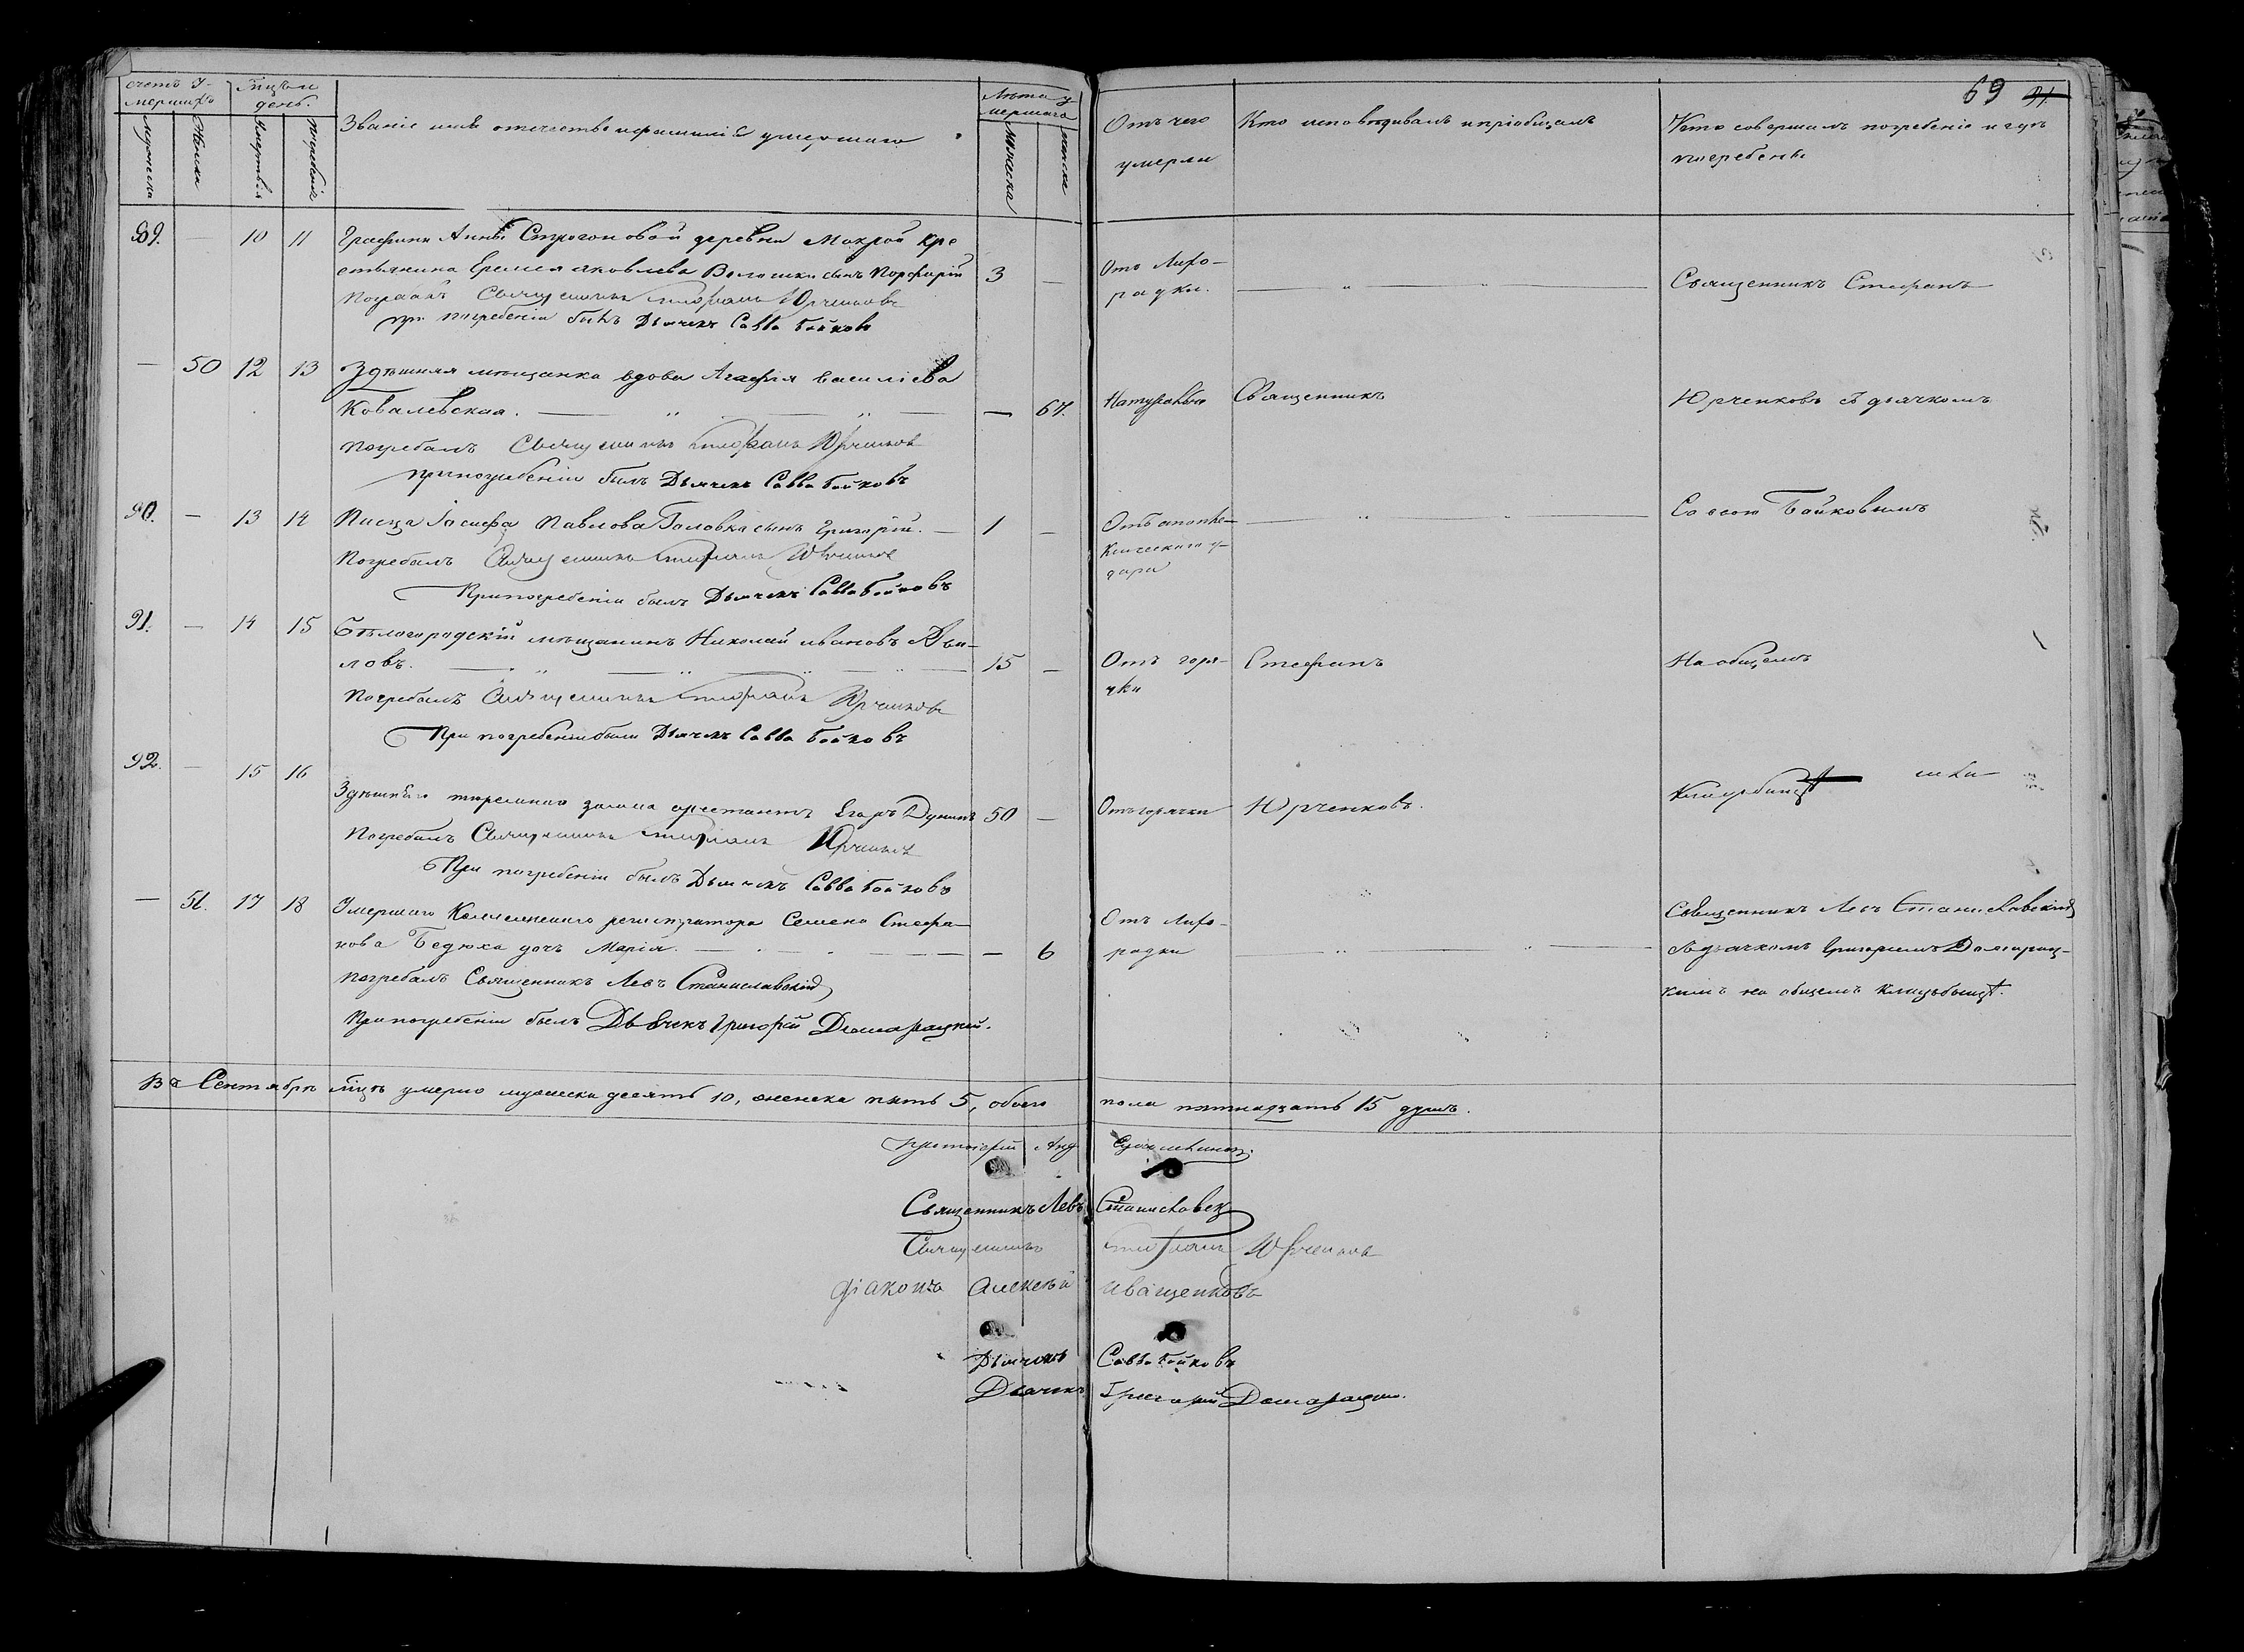 69 91
счетъ у-
мершихъ
Мцъ и
день.
Званіе имя отчество и фамилія умершаго
Лѣта у-
мершаго
Отъ чего
умерли
Кто исповѣдывалъ и пріобщалъ
Кто совершалъ погребеніе и гдѣ
погребены
мужеска
женска
смерти
погребенія
мужеска
женска
89. — 10 11 Графини Анны Строгоновой деревни Мокрой кре
стьянина Еремея яковлева Волошки сынъ Порфирій 3 — Отъ Лихо-
радки. Священникъ Стефанъ
Погребалъ Священникъ Стефанъ Юрченковъ
при погребеніи былъ Дьячекъ Савва Бойковъ
— 50 12 13 Здѣшняя мѣщанка вдова Агафія василіева
Ковалевская. — 67. Натурально Священникъ Юрченковъ съ дьячкомъ
погребалъ Священникъ Стефанъ Юрченковъ
при погребеніи былъ Дьячекъ Савва Бойковъ
90. — 13 14 Писца Іосифа Павлова Головка сынъ Григорій. — 1 — Отъ апопле-
ктическаго у-
дара Саввою Бойковымъ
Погребалъ Священникъ Стефанъ Юрченковъ
При погребеніи былъ Дьячекъ Савва Бойковъ
91. — 14 15 Бѣлогородскій мѣщанинъ Николай ивановъ
ловъ. 15 — Отъ горя-
чки Стефанъ На общемъ
Погребалъ Священникъ Стефанъ Юрченковъ
При погребеніи былъ Дьячекъ Савва Бойковъ
92. — 15 16
Здѣшняго тюремнаго замка арестантъ Егоръ Дунинъ 50 — Отъ горячки Юрченковъ. Кладбищѣ
Погребалъ Священникъ Стефанъ Юрченковъ
При погребеніи былъ Дьячекъ Савва Бойковъ
— 51. 17 18 Умершаго Коллежскаго регистратора Семена Стефа-
нова Бедюха дочь Марія. — 6 Отъ Лихо-
радки
Священникъ Левъ Станиславскій
съ дьячкомъ Григоріемъ Домарац-
кимъ на общемъ кладьбищѣ.
погребалъ Священникъ Левъ Станиславскій
При погребеніи былъ Дьячекъ Григорій Домарацкій.
Въ Сентябрѣ мцѣ умерло мужеска десять 10, женска пять 5, обоего пола пятнадцать 15 душъ.
Протоіерей Анд
Священникъ Левъ Станиславск
Священникъ Стефанъ Юрченковъ
діаконъ Алексѣй Иващенковъ
Дьячекъ Савва Бойковъ
Дьячекъ Григорій Домарацкій.